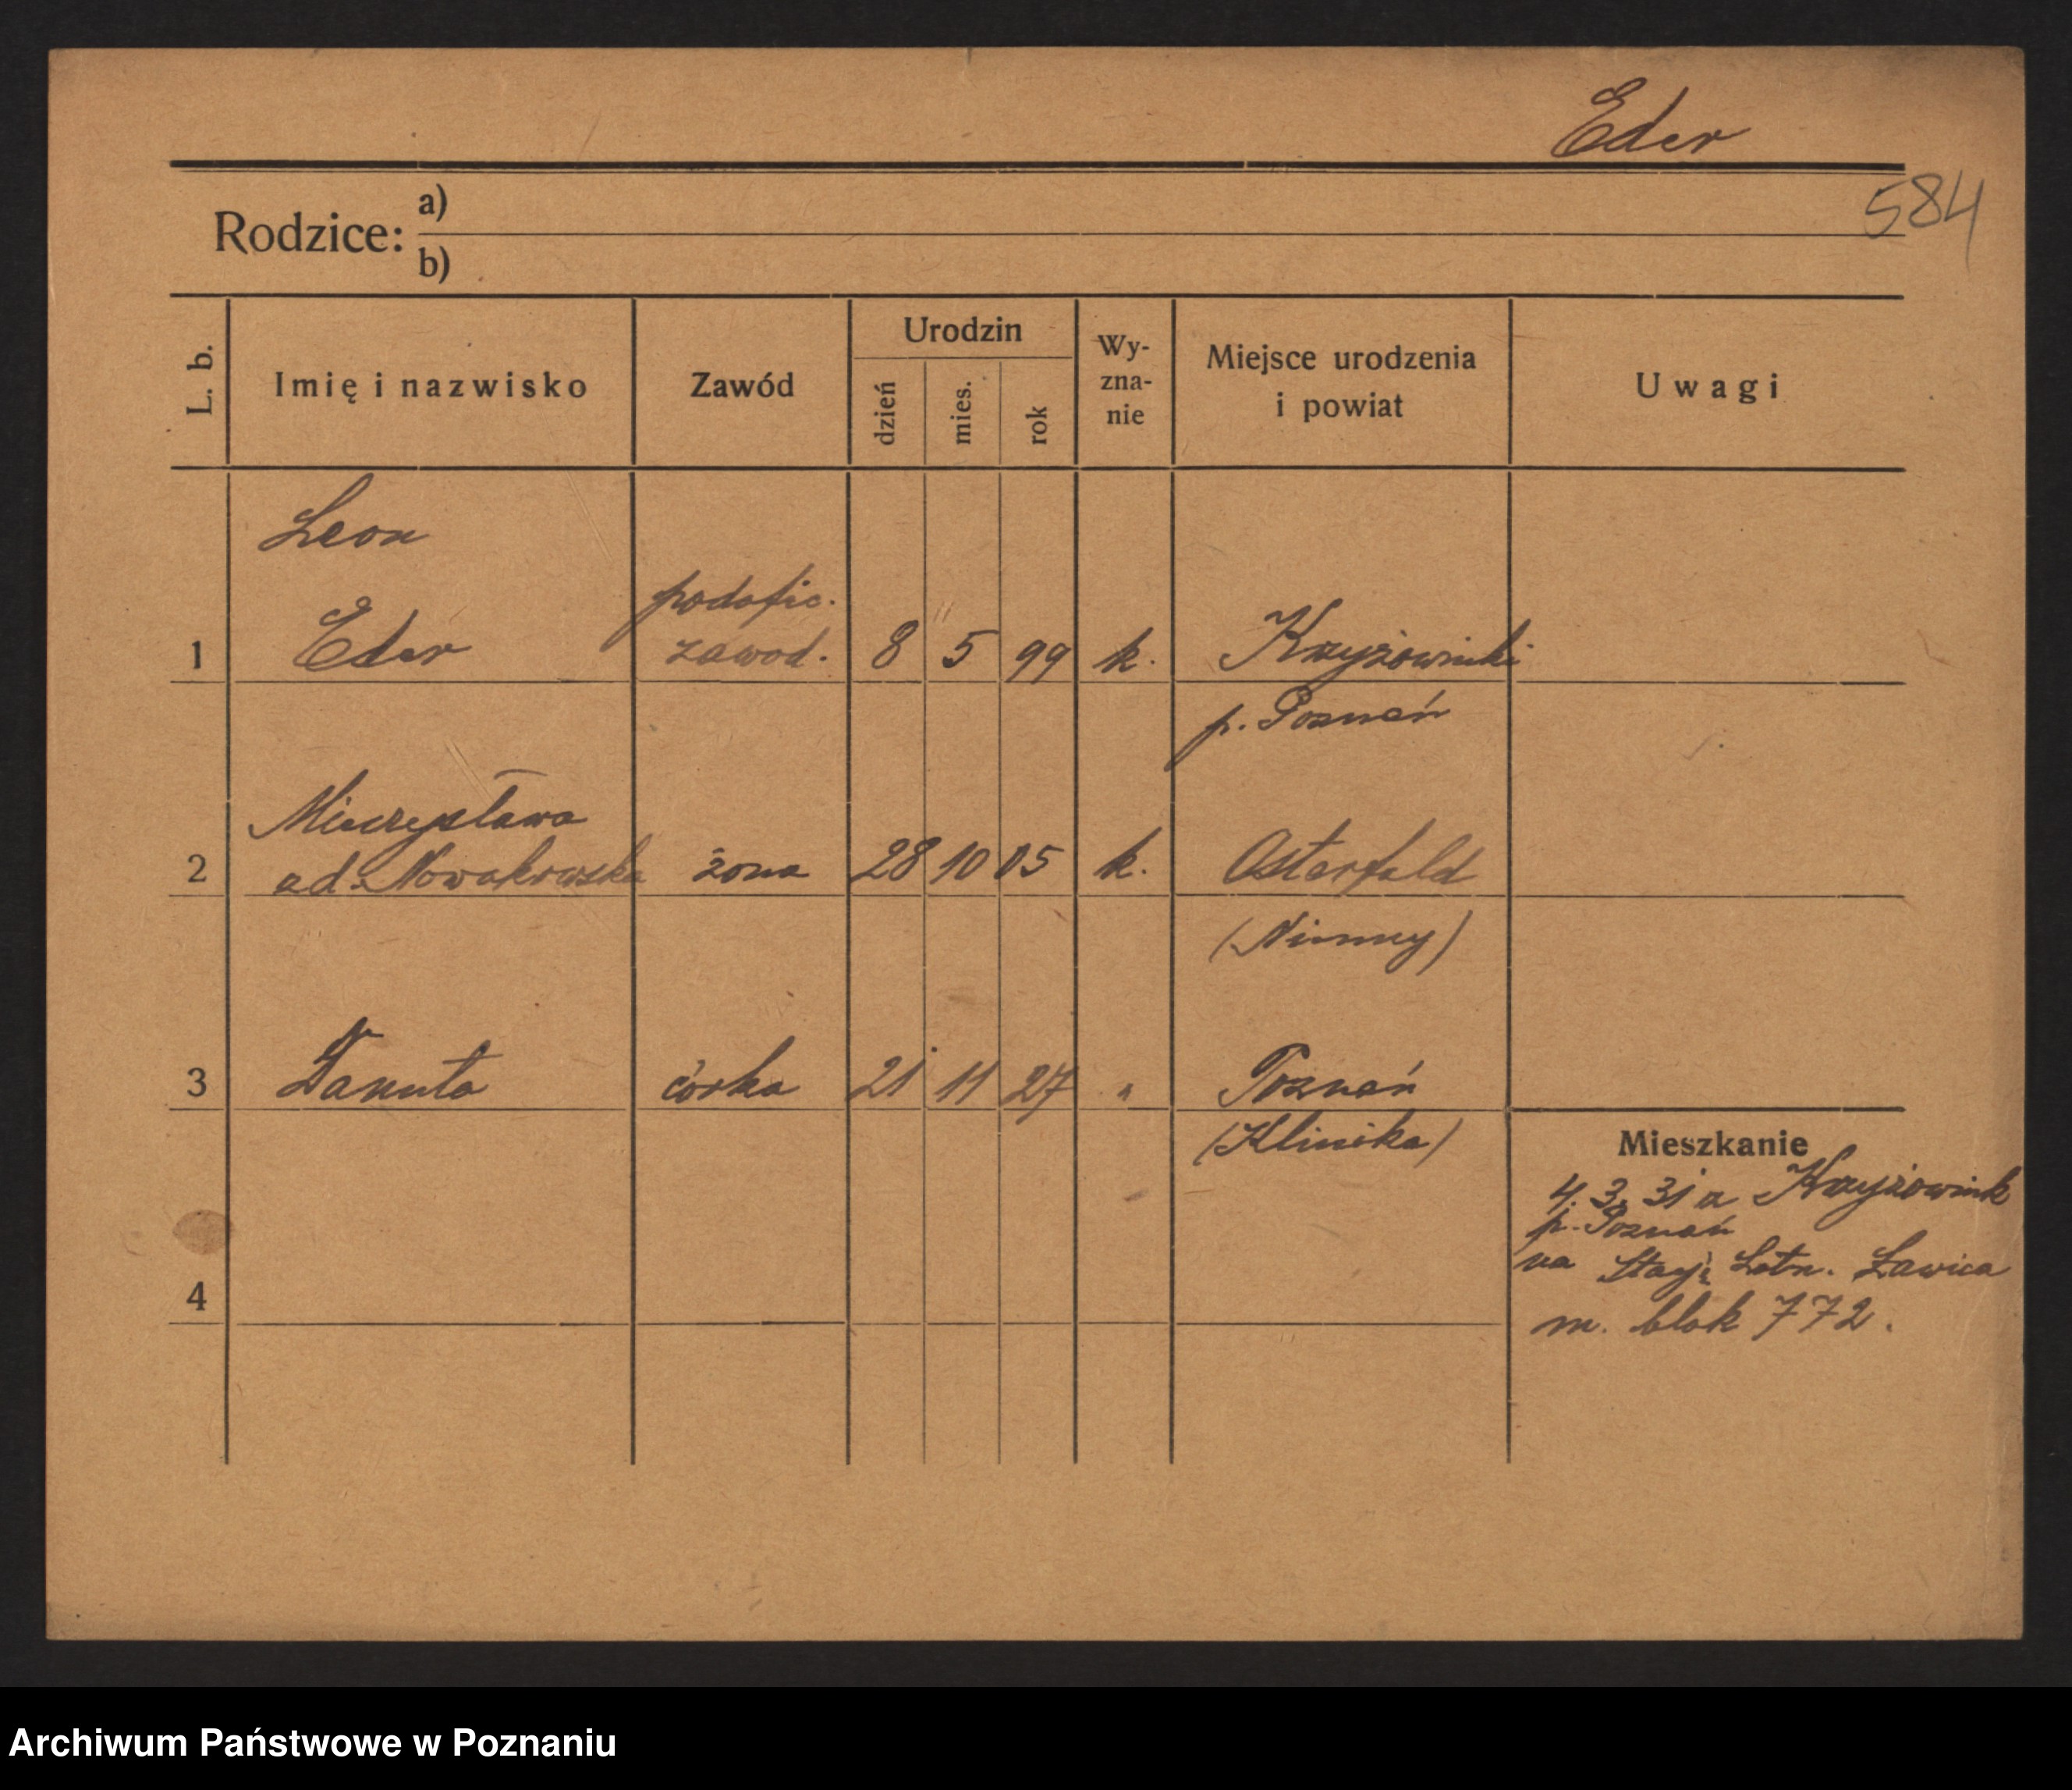 Eder
584
Rodzice: a)
b)
L. b.
Imię i nazwisko
Zawód
Urodzin
dzień
mies.
rok
Wy-
zna-
nie
Miejsce urodzenia
i powiat
Uwagi
Leon
podofic.
1 Eder zawod. 8 5 99 k. Krzyżowniki
p. Poznań
Mieczysława
2 od. Nowakowska żona 28 10 05 k. Osterfeld
(Niemcy)
3 Danuta córka 21 11 27 " Poznań
(Klinika)
Mieszkanie
4. 3. 31 z Krzyżownik
p. Poznań
na Stacji Lotn. Ławica
4
m. blok 772.
Archiwum Państwowe w Poznaniu